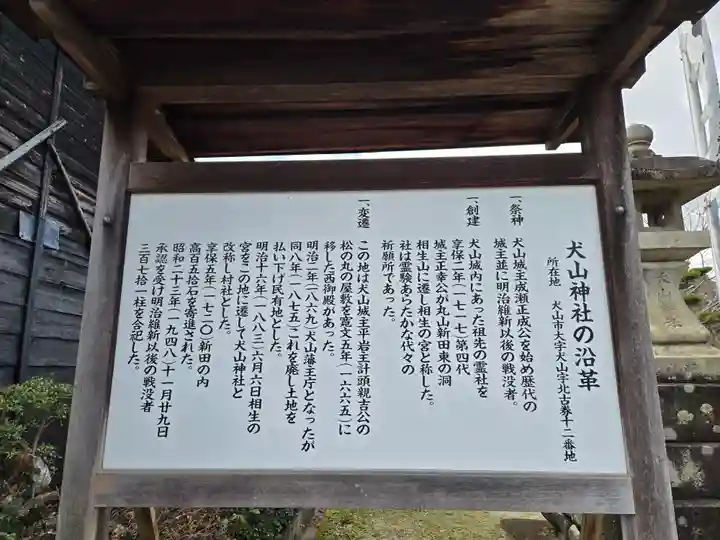 犬山神社の沿革
所在地　犬山市大字犬山字北古券十二番地
一、祭神
犬山城主成瀬正成公を始め歴代の
城主並に明治維新以後の戦没者。
一、創建
犬山城内にあった祖先の霊社を
享保二年（一七一七）第四代
城主正幸公が丸山新田東の洞
相生山に遷し相生の宮と称した。
社は霊験あらたかな代々の
祈願所であった。
一、変遷
この地は犬山城主平岩主計頭親吉公の
松の丸の屋敷を寛文五年（一六六五）に
移した西御殿があった。
明治二年（一八六九）犬山藩主庁となったが
同八年（一八七五）これを廃し土地を
払い下げ民有地とした。
明治十六年（一八八三）六月六日相生の
宮をこの地に遷して犬山神社と
改称し村社とした。
享保五年（一七二〇）新田の内
高百五拾石を寄進された。
昭和二十三年（一九四八）十一月廿九日
承認を受け明治維新以後の戦没者
三百七拾一柱を合祀した。